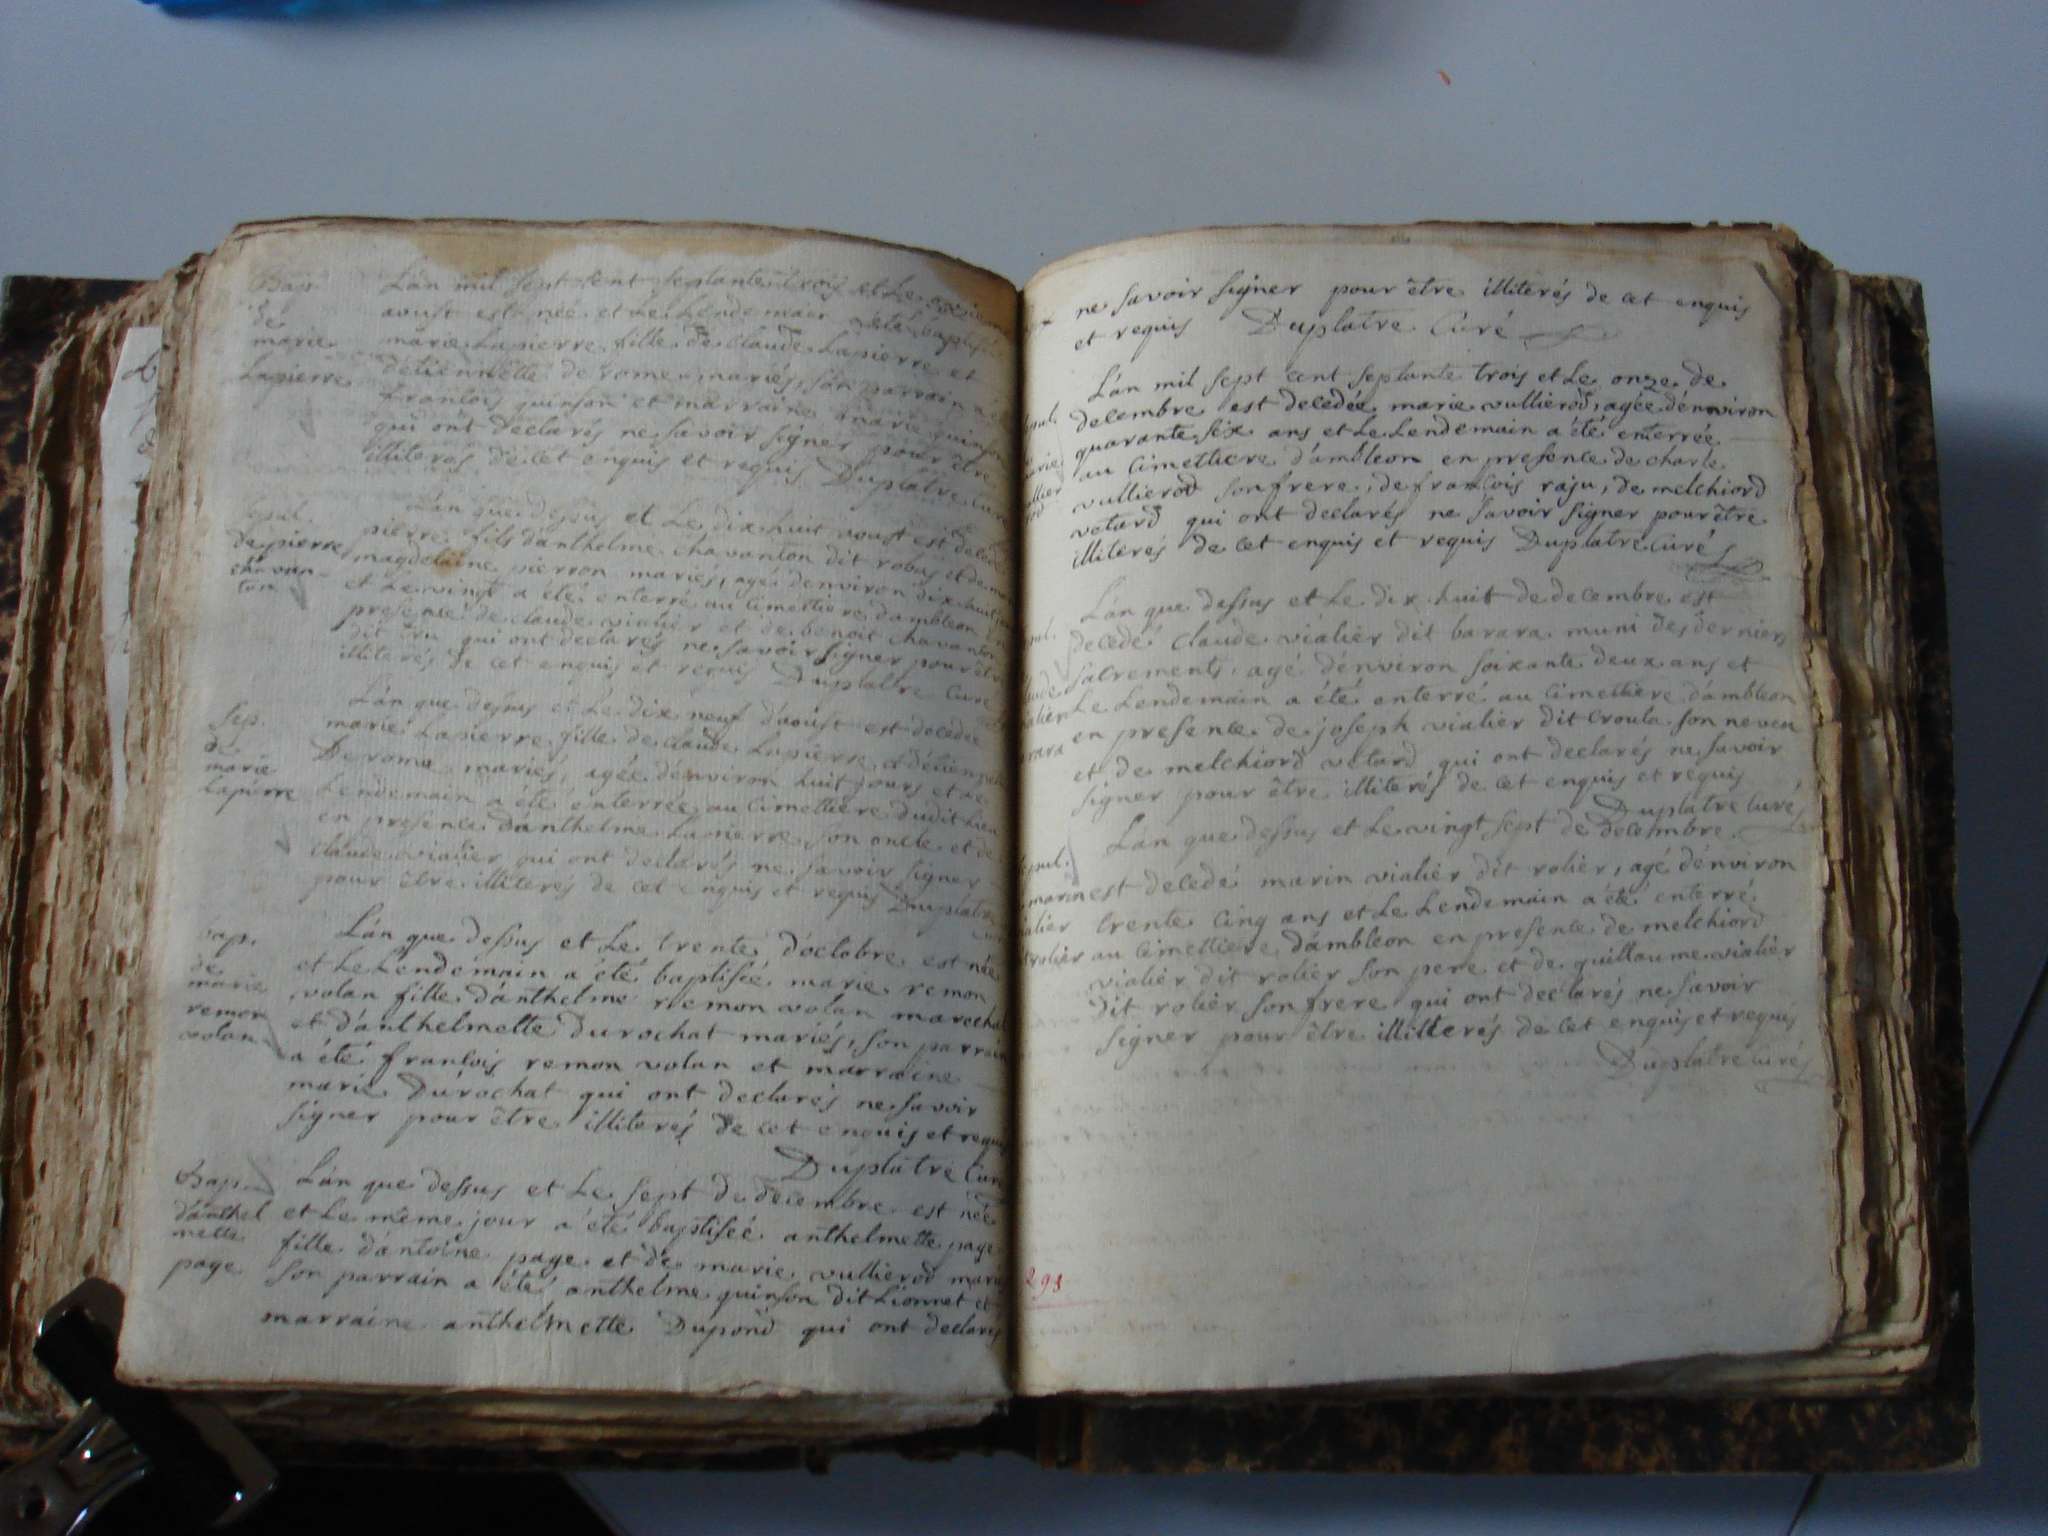 Bap.
de
marie
Lapierre
L'an mil sept cent septante trois et Le onzieme
aoust est née et Le Lendemain a été baptisée
marie Lapierre fille de claude Lapierre et
d'etiennette de rome mariés, son parrain a été
francois quinson et marraine marie quinson
qui ont declarés ne savoir signer pour être
illiterés de cet enquis et requis Duplatre Curé
Sepul.
de pierre
chavan-
ton
L'an que dessus et Le dix huit aoust est decedé
pierre fils d'anthelme chavanton dit robas et de
magdelaine pierron mariés, agé d'environ dix huit
et Le vingt a été enterré au Cimettiere d'ambleon
presence de claude vialier et de benoit chavanton
dit tru qui ont declarés ne savoir signer pour être
illiterés de cet enquis et requis Duplatre Curé
Sep.
de
marie
Lapierre
L'an que dessus et Le dix neuf d'aoust est decedée
marie Lapierre fille de claude Lapierre et d'etiennette
De rome mariés, agée d'environ huit jours et Le
Lendemain a été enterrée au Cimettiere dudit Lieu
en presence d'anthelme Lapierre son oncle et de
claude vialier qui ont declarés ne savoir signer
pour être illiterés de cet enquis et requis Duplatre
Curé
bap.
de
marie
remon
volan
L'an que dessus et Le trente d'octobre est née
et Le Lendemain a été baptisée marie remon
volan fille d'anthelme remon volan marechal
et d'anthelmette durochat mariés, son parrain
a été francois remon volan et marraine
marie Durochat qui ont declarés ne savoir
signer pour être illiterés de cet enquis et requis
Duplatre Curé
Bap.
d'anthel
mette
page
L'an que dessus et Le sept de decembre est née
et Le même jour a été baptisée anthelmette page
fille d'antoine page et de marie vullierod mariés
son parrain a été anthelme quinson dit Lionnet et
marraine anthelmette Dupond qui ont declarés
ne savoir signer pour être illiterés de cet enquis
et requis Duplatre Curé
L'an mil sept cent septante trois et Le onze de
decembre est decedée marie vullierod, agée d'environ
quarante six ans et Le Lendemain a été enterrée
au Cimettiere d'ambleon en presence de charle
vullierod son frere, de francois raju, de melchiord
votard qui ont declarés ne savoir signer pour être
illiterés de cet enquis et requis Duplatre Curé
L'an que dessus et Le dix huit de decembre est
decedé Claude vialier dit barara muni des derniers
sacrements, agé d'environ soixante deux ans et
Le Lendemain a été enterré au Cimettiere d'ambleon
en presence de joseph vialier dit croula son neveu
et de melchiord votard qui ont declarés ne savoir
signer pour être illiterés de cet enquis et requis
Duplatre Curé
L'an que dessus et Le vingt sept de decembre
est decedé marin vialier dit rolier, agé d'environ
trente cinq ans et Le Lendemain a été enterré
au Cimettiere d'ambleon en presence de melchiord
vialier dit rolier son pere et de guillaume vialier
dit rolier son frere qui ont declarés ne savoir
signer pour être illitterés de cet enquis et requis
Duplatre Curé
293